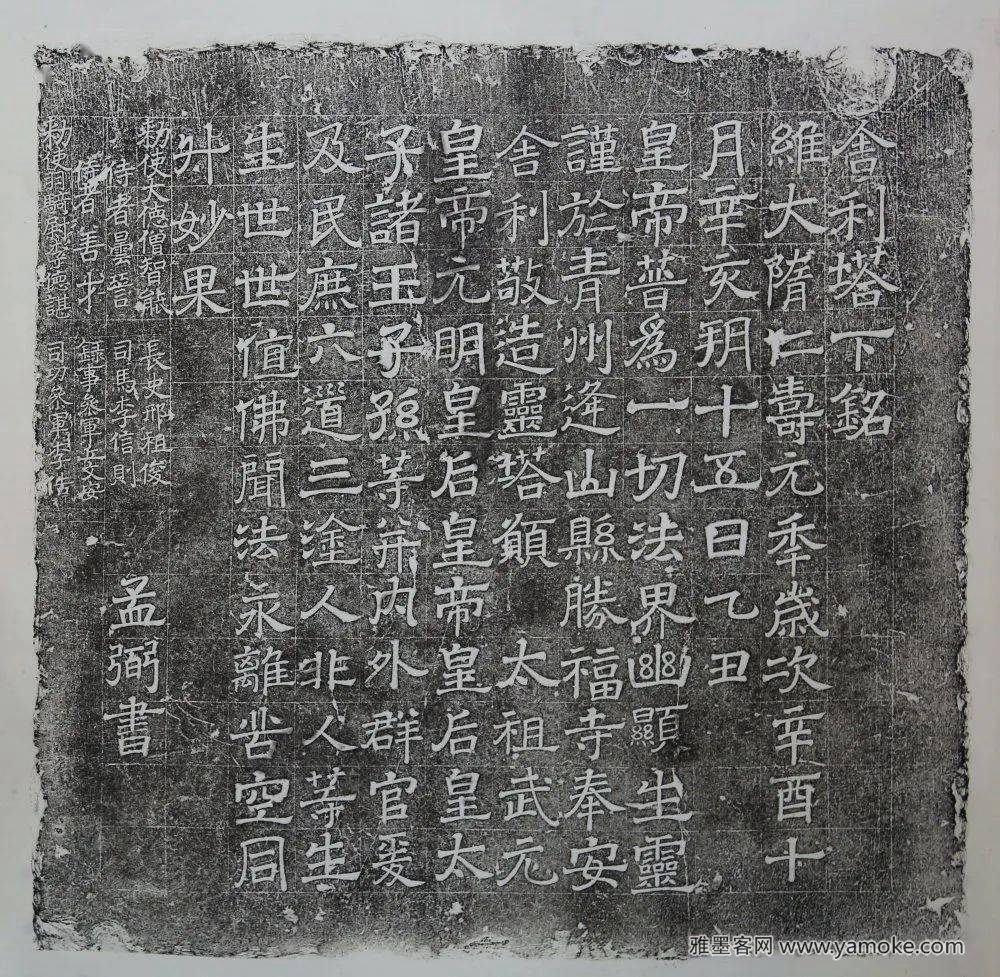 舍利塔下銘
維大隋仁壽元秊歲次辛酉十
月辛亥朔十五日乙丑
皇帝普為一切法界幽顯生靈
謹於青州逄山縣勝福寺奉安
舍利敬造靈塔願太祖武元
皇帝元明皇后皇帝皇后皇太
子諸王子孫等并內外群官爰
及民庶六道三塗人非人等生
生世世值佛聞法永離苦空同
升妙果
敕使大德僧智能 長史邢祖俊
侍者曇辯 司馬李信則
侍者善才 錄事參軍丘文安
敕使羽騎尉李德諶 司功參軍李佸
孟弼書
雅墨客网 www.yamoke.com